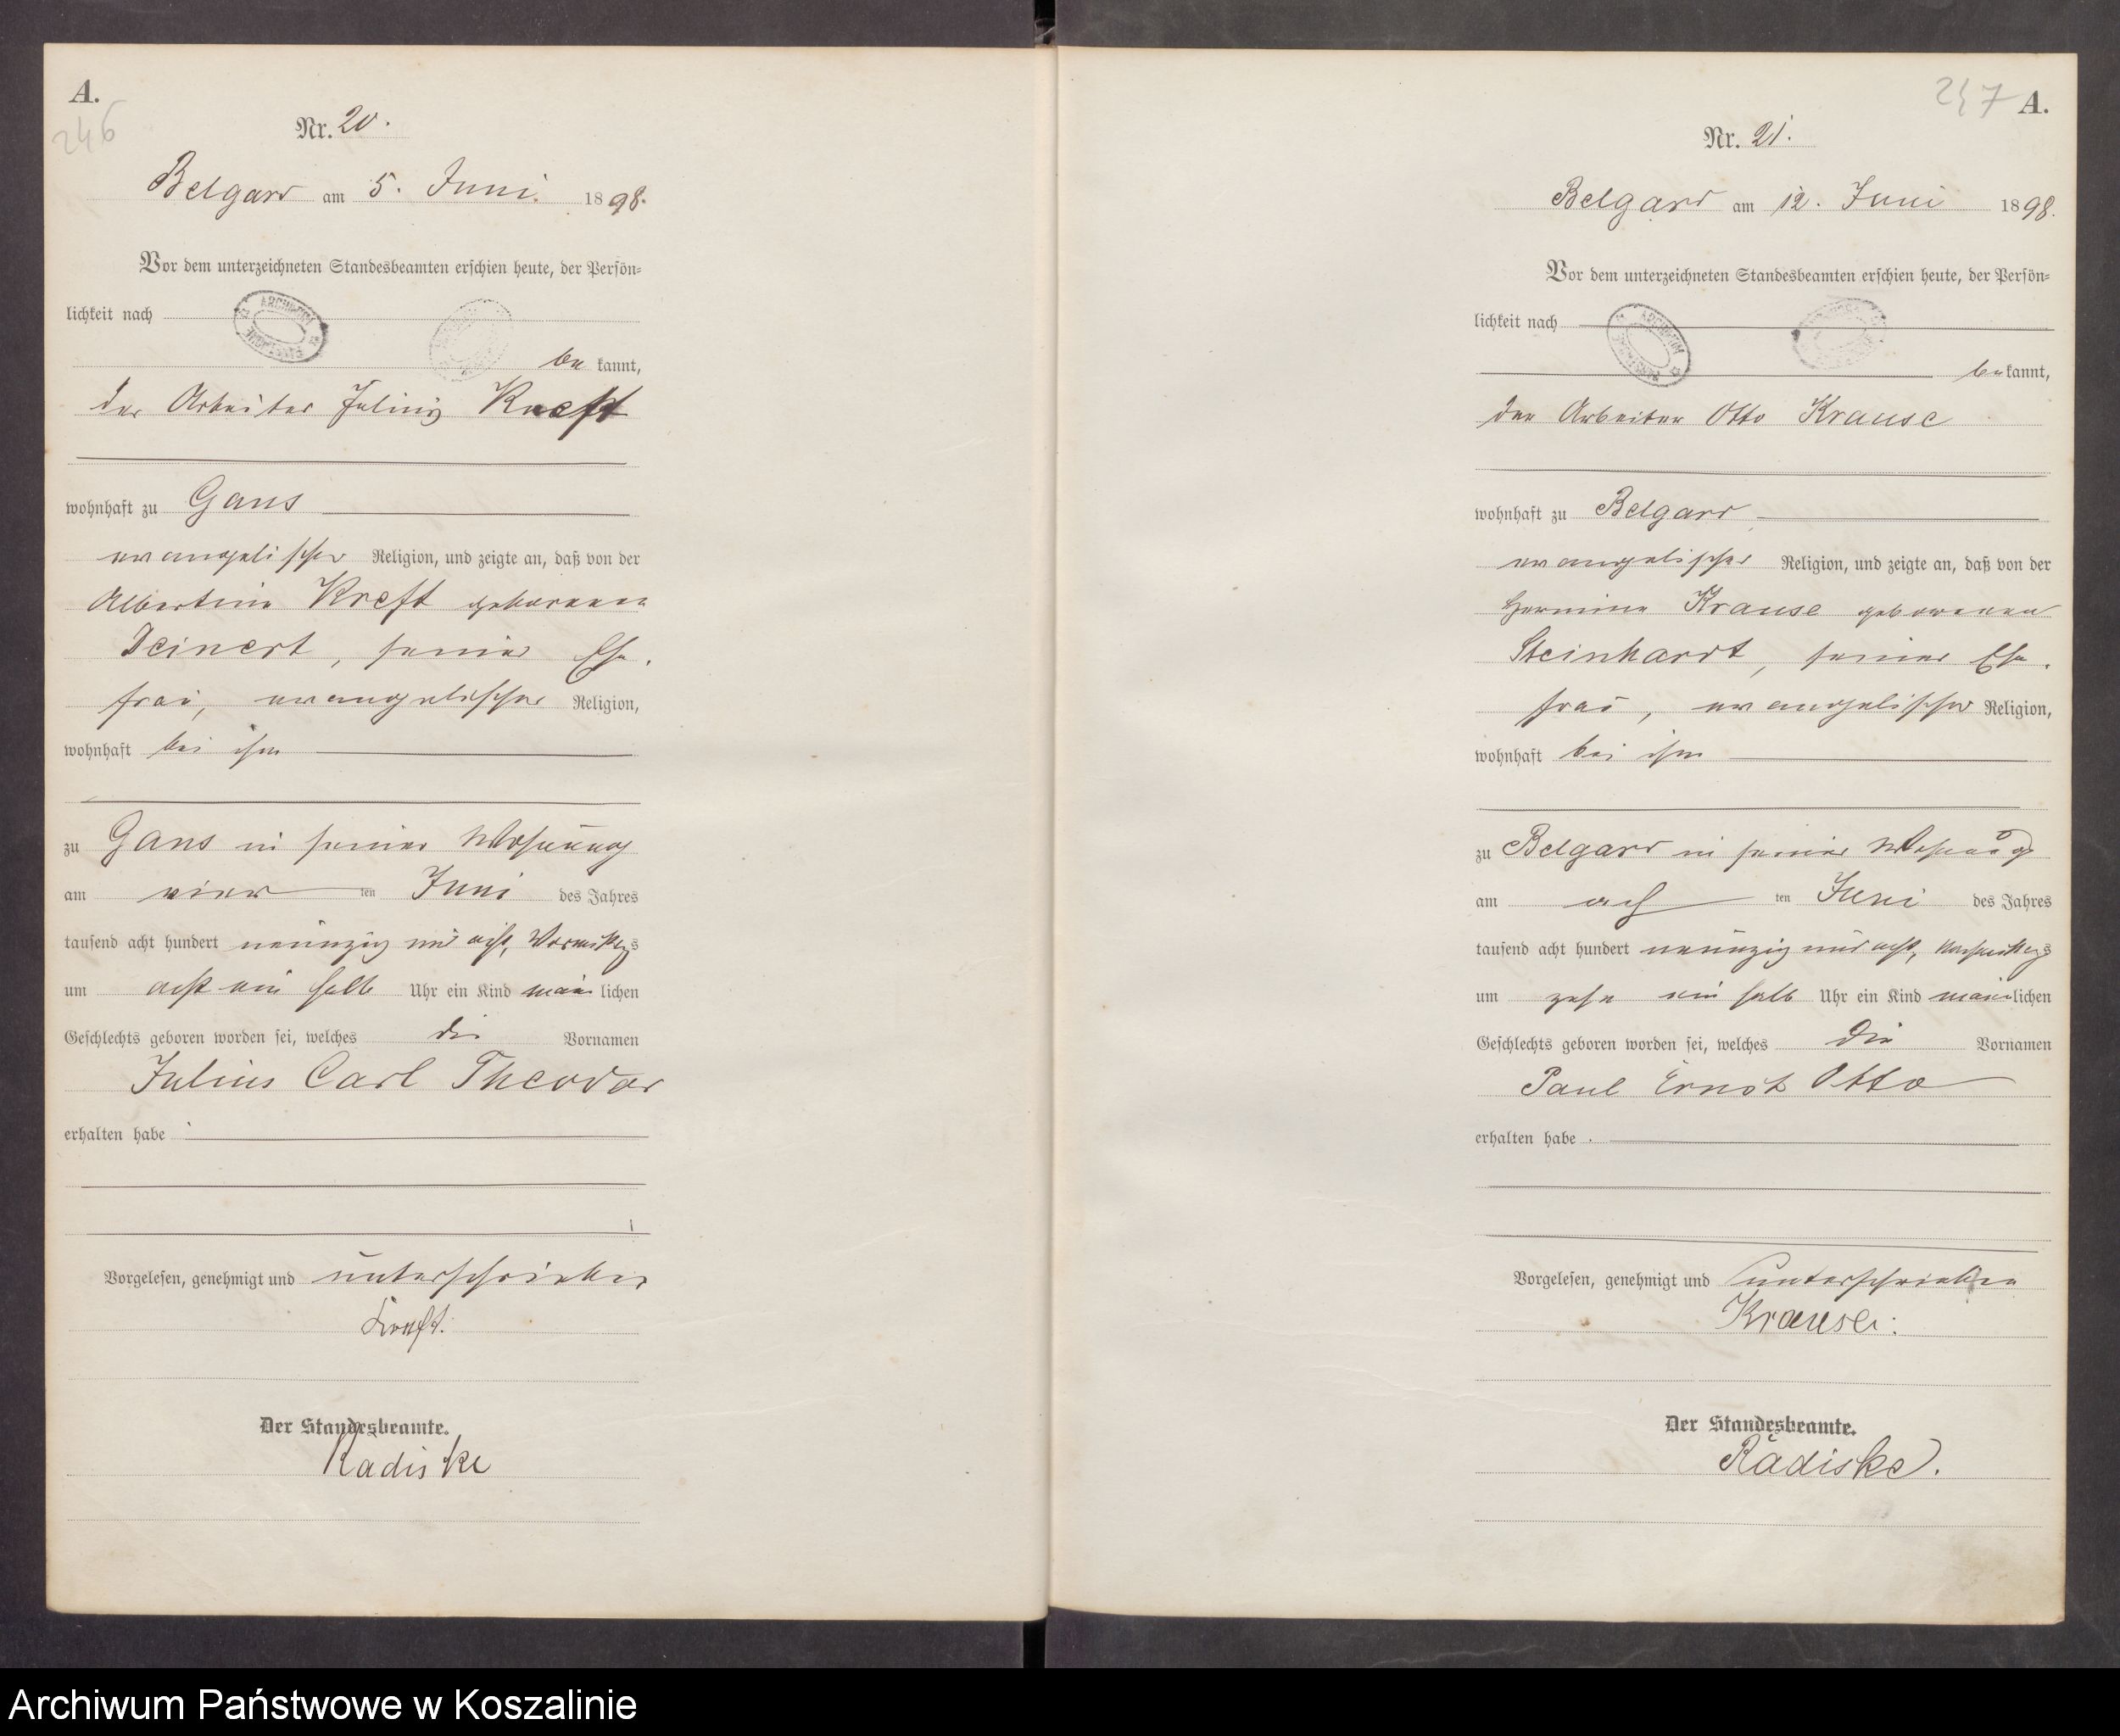 A.
246
Nr. 20.
Belgard am 5. Juni 1898.
Vor dem unterzeichneten Standesbeamten erschien heute, der Persön=
lichkeit nach
be kannt,
der Arbeiter Julius Kreft
wohnhaft zu Gans
evangelischer Religion, und zeigte an, daß von der
Albertine Kreft geborenen
Deinert, seiner Ehe.
frau, evangelischer Religion,
wohnhaft bei ihm
zu Gans in seiner Wohnung
am vier ten Juni des Jahres
tausend acht hundert neunzig und acht, Vormittags
um acht ein halb Uhr ein Kind männ lichen
Geschlechts geboren worden sei, welches die Vornamen
Julius Carl Theodor
erhalten habe.
Vorgelesen, genehmigt und unterschrieben
Kreft.
Der Standesbeamte.
Radiske
247 A.
Nr. 21.
Belgard am 12. Juni 1898.
Vor dem unterzeichneten Standesbeamten erschien heute, der Persön=
lichkeit nach
be kannt,
der Arbeiter Otto Krause
wohnhaft zu Belgard
evangelischer Religion, und zeigte an, daß von der
Hermine Krause geborenen
Steinhardt, seiner Ehe.
frau, evangelischer Religion,
wohnhaft bei ihm
zu Belgard in seiner Wohnung
am ach ten Juni des Jahres
tausend acht hundert neunzig und acht, Nachmittags
um zehn ein halb Uhr ein Kind männlichen
Geschlechts geboren worden sei, welches die Vornamen
Paul Ernst Otto
erhalten habe.
Vorgelesen, genehmigt und unterschrieben
Krause.
Der Standesbeamte.
Radiske.
Archiwum Państwowe w Koszalinie